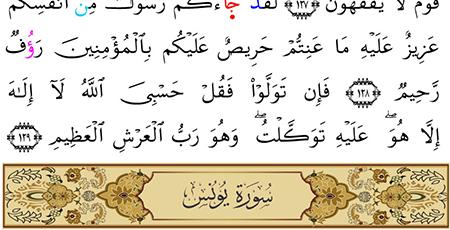 قَوْمٌ لَّا يَفْقَهُونَ ﴿١٢٧﴾ لَقَدْ جَاءَكُمْ رَسُولٌ مِّنْ أَنفُسِكُمْ
عَزِيزٌ عَلَيْهِ مَا عَنِتُّمْ حَرِيصٌ عَلَيْكُم بِالْمُؤْمِنِينَ رَؤُفٌ
رَّحِيمٌ ﴿١٢٨﴾ فَإِن تَوَلَّوْا فَقُلْ حَسْبِيَ اللَّهُ لَآ إِلَـٰهَ
إِلَّا هُوَ ۖ عَلَيْهِ تَوَكَّلْتُ ۖ وَهُوَ رَبُّ الْعَرْشِ الْعَظِيمِ ﴿١٢٩﴾
سُورَةُ يُونُسَ